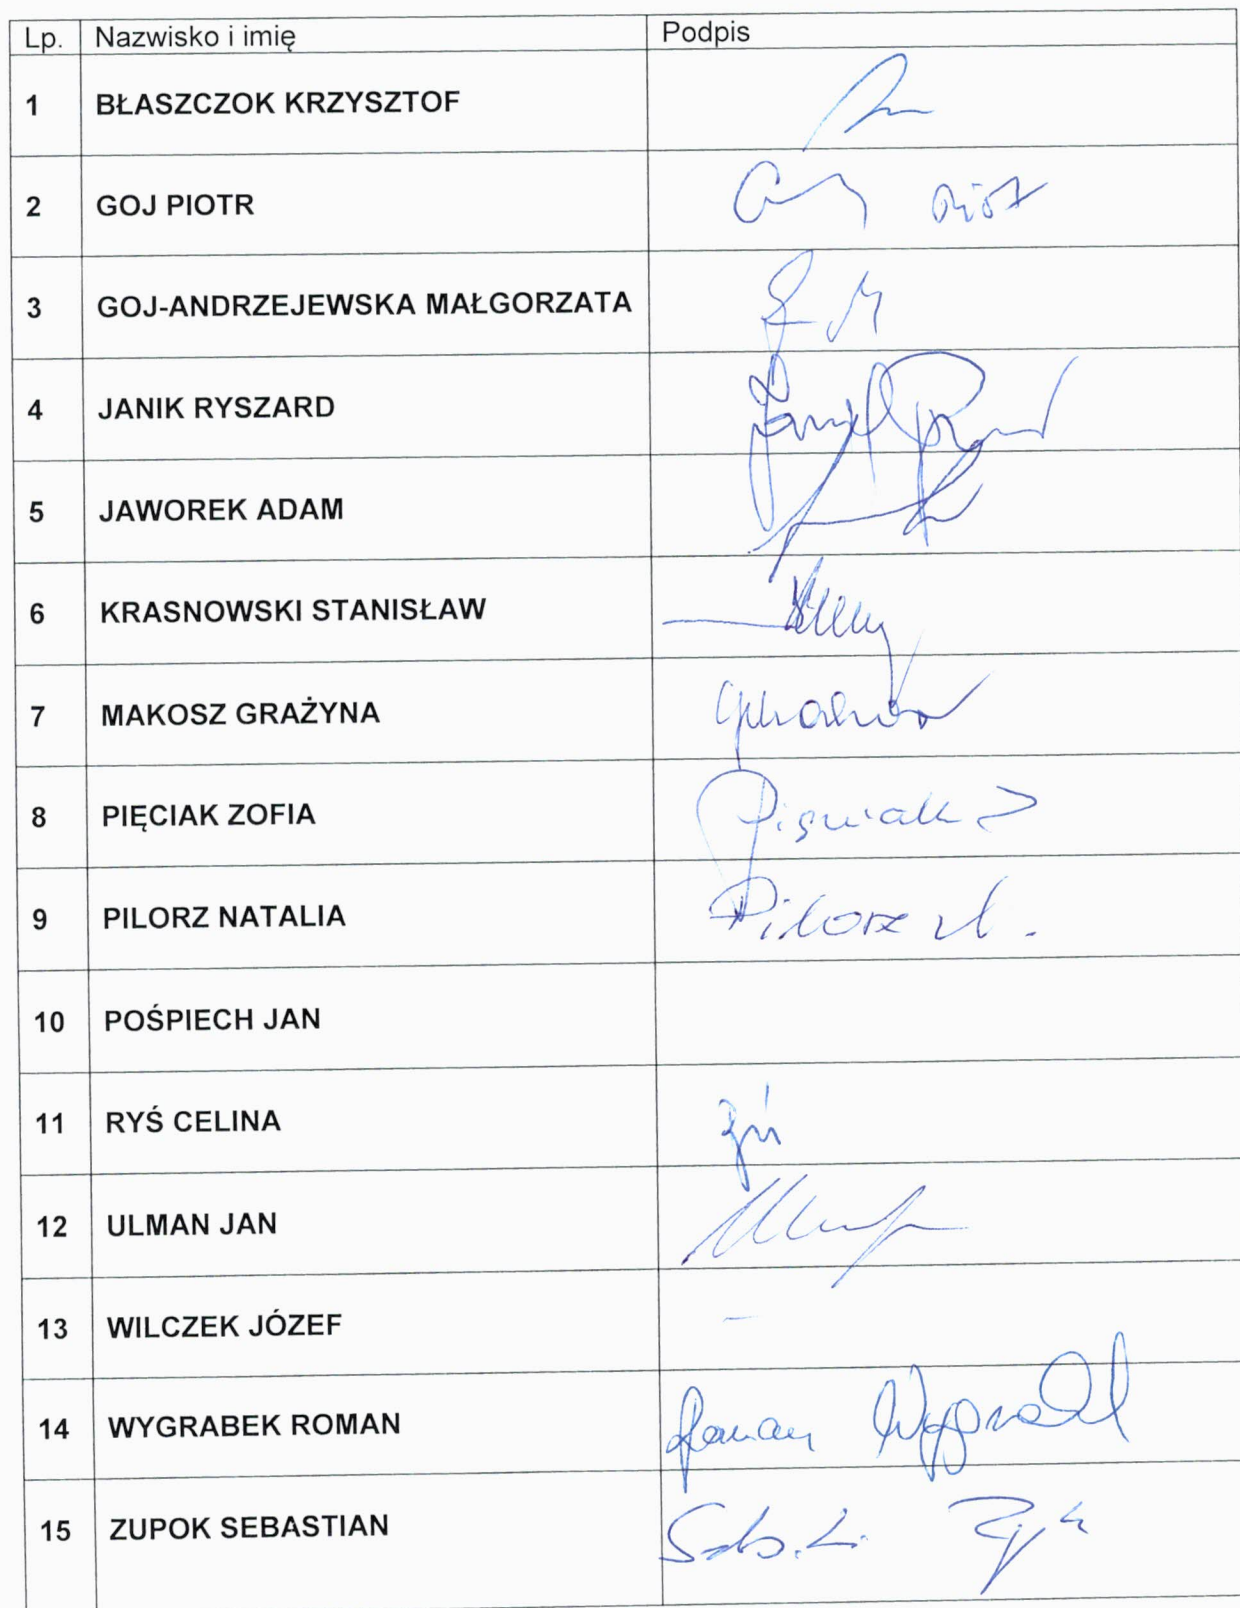 Lp. Nazwisko i imię Podpis
1 BŁASZCZOK KRZYSZTOF
2 GOJ PIOTR
3 GOJ-ANDRZEJEWSKA MAŁGORZATA
4 JANIK RYSZARD
5 JAWOREK ADAM
6 KRASNOWSKI STANISŁAW
7 MAKOSZ GRAŻYNA
8 PIĘCIAK ZOFIA
9 PILORZ NATALIA Pilorz N.
10 POŚPIECH JAN
11 RYŚ CELINA
12 ULMAN JAN
13 WILCZEK JÓZEF –
14 WYGRABEK ROMAN Roman
15 ZUPOK SEBASTIAN